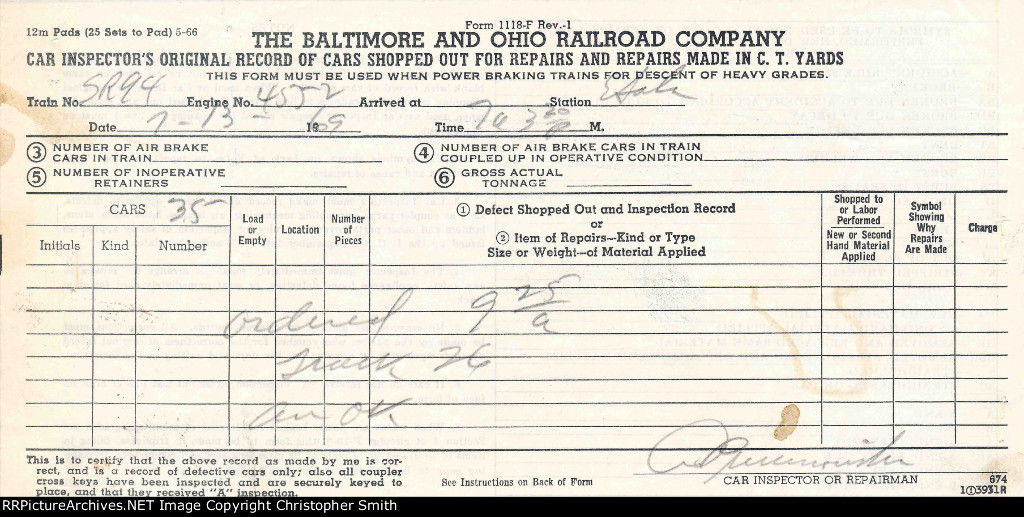 12m Pads (25 Sets to Pad) 5-66
Form 1118-F Rev.-1
THE BALTIMORE AND OHIO RAILROAD COMPANY
CAR INSPECTOR'S ORIGINAL RECORD OF CARS SHOPPED OUT FOR REPAIRS AND REPAIRS MADE IN C. T. YARDS
THIS FORM MUST BE USED WHEN POWER BRAKING TRAINS FOR DESCENT OF HEAVY GRADES.
Train No. SR94 Engine No. 4552 Arrived at Station
Date 7-13- 1969 Time M.
③ NUMBER OF AIR BRAKE CARS IN TRAIN
④ NUMBER OF AIR BRAKE CARS IN TRAIN COUPLED UP IN OPERATIVE CONDITION
⑤ NUMBER OF INOPERATIVE RETAINERS
⑥ GROSS ACTUAL TONNAGE
CARS 35
Initials Kind Number
Load or Empty
Location
Number of Pieces
① Defect Shopped Out and Inspection Record
or
② Item of Repairs—Kind or Type
Size or Weight—of Material Applied
Shopped to or Labor Performed
New or Second Hand Material Applied
Symbol Showing Why Repairs Are Made
Charge
ordered 9 25/a
track 26
air OK
This is to certify that the above record as made by me is cor-
rect, and is a record of defective cars only; also all coupler
cross keys have been inspected and are securely keyed to
place, and that they received "A" inspection.
See Instructions on Back of Form
CAR INSPECTOR OR REPAIRMAN
674
RRPictureArchives.NET Image Copyright Christopher Smith